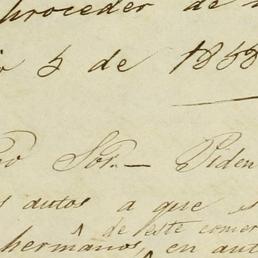 proceder de
o 5 de 1858
Sor.— Piden
s autos a que s
de este comer
hermanos, en aut